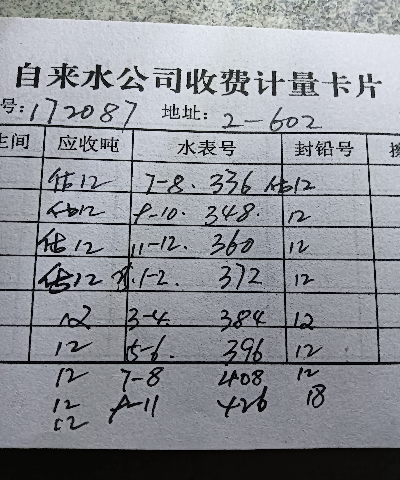 自来水公司收费计量卡片
号:172087 地址: 2-602
生间 应收吨 水表号 封铅号
估12 7-8. 336 估12
估12 9-10. 348. 12
估12 11-12. 360 12
估12 1-2. 372 12
12 3-4. 384 12
12 5-6. 396 12
12 7-8 408 12
12 9-11 426 18
12